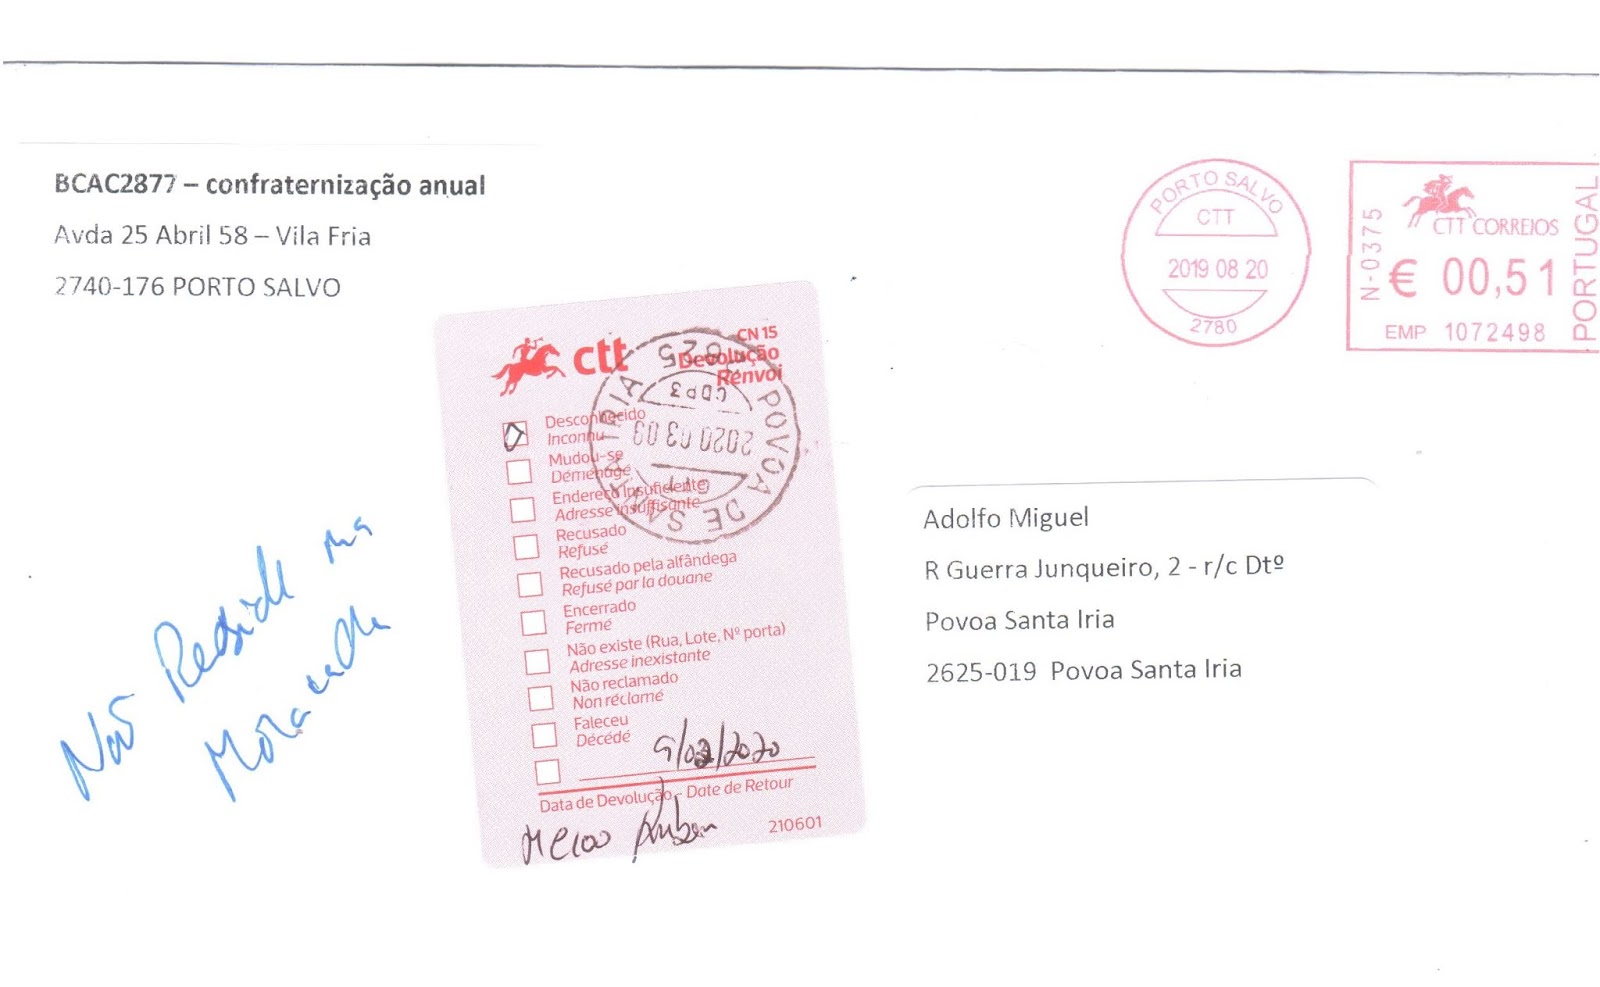 BCAC2877 – confraternização anual
Avda 25 Abril 58 – Vila Fria
2740-176 PORTO SALVO
PORTO SALVO
CTT
2019 08 20
2780
N-0375
CTT CORREIOS
€ 00,51
EMP 1072498
PORTUGAL
ctt
CN 15
Devolução
Renvoi
Desconhecido
Inconnu
Mudou-se
Déménagé
Endereço Insuficiente
Adresse insuffisante
Recusado
Refusé
Recusado pela alfândega
Refusé par la douane
Encerrado
Fermé
Não existe (Rua, Lote, Nº porta)
Adresse inexistante
Não reclamado
Non réclamé
Faleceu
Décédé
9/03/2020
Data de Devolução - Date de Retour
210601
POVOA DE SANTA IRIA
CDP3
2020 03 09
CTT
Não Reside na
Morada
Adolfo Miguel
R Guerra Junqueiro, 2 - r/c Dtº
Povoa Santa Iria
2625-019 Povoa Santa Iria